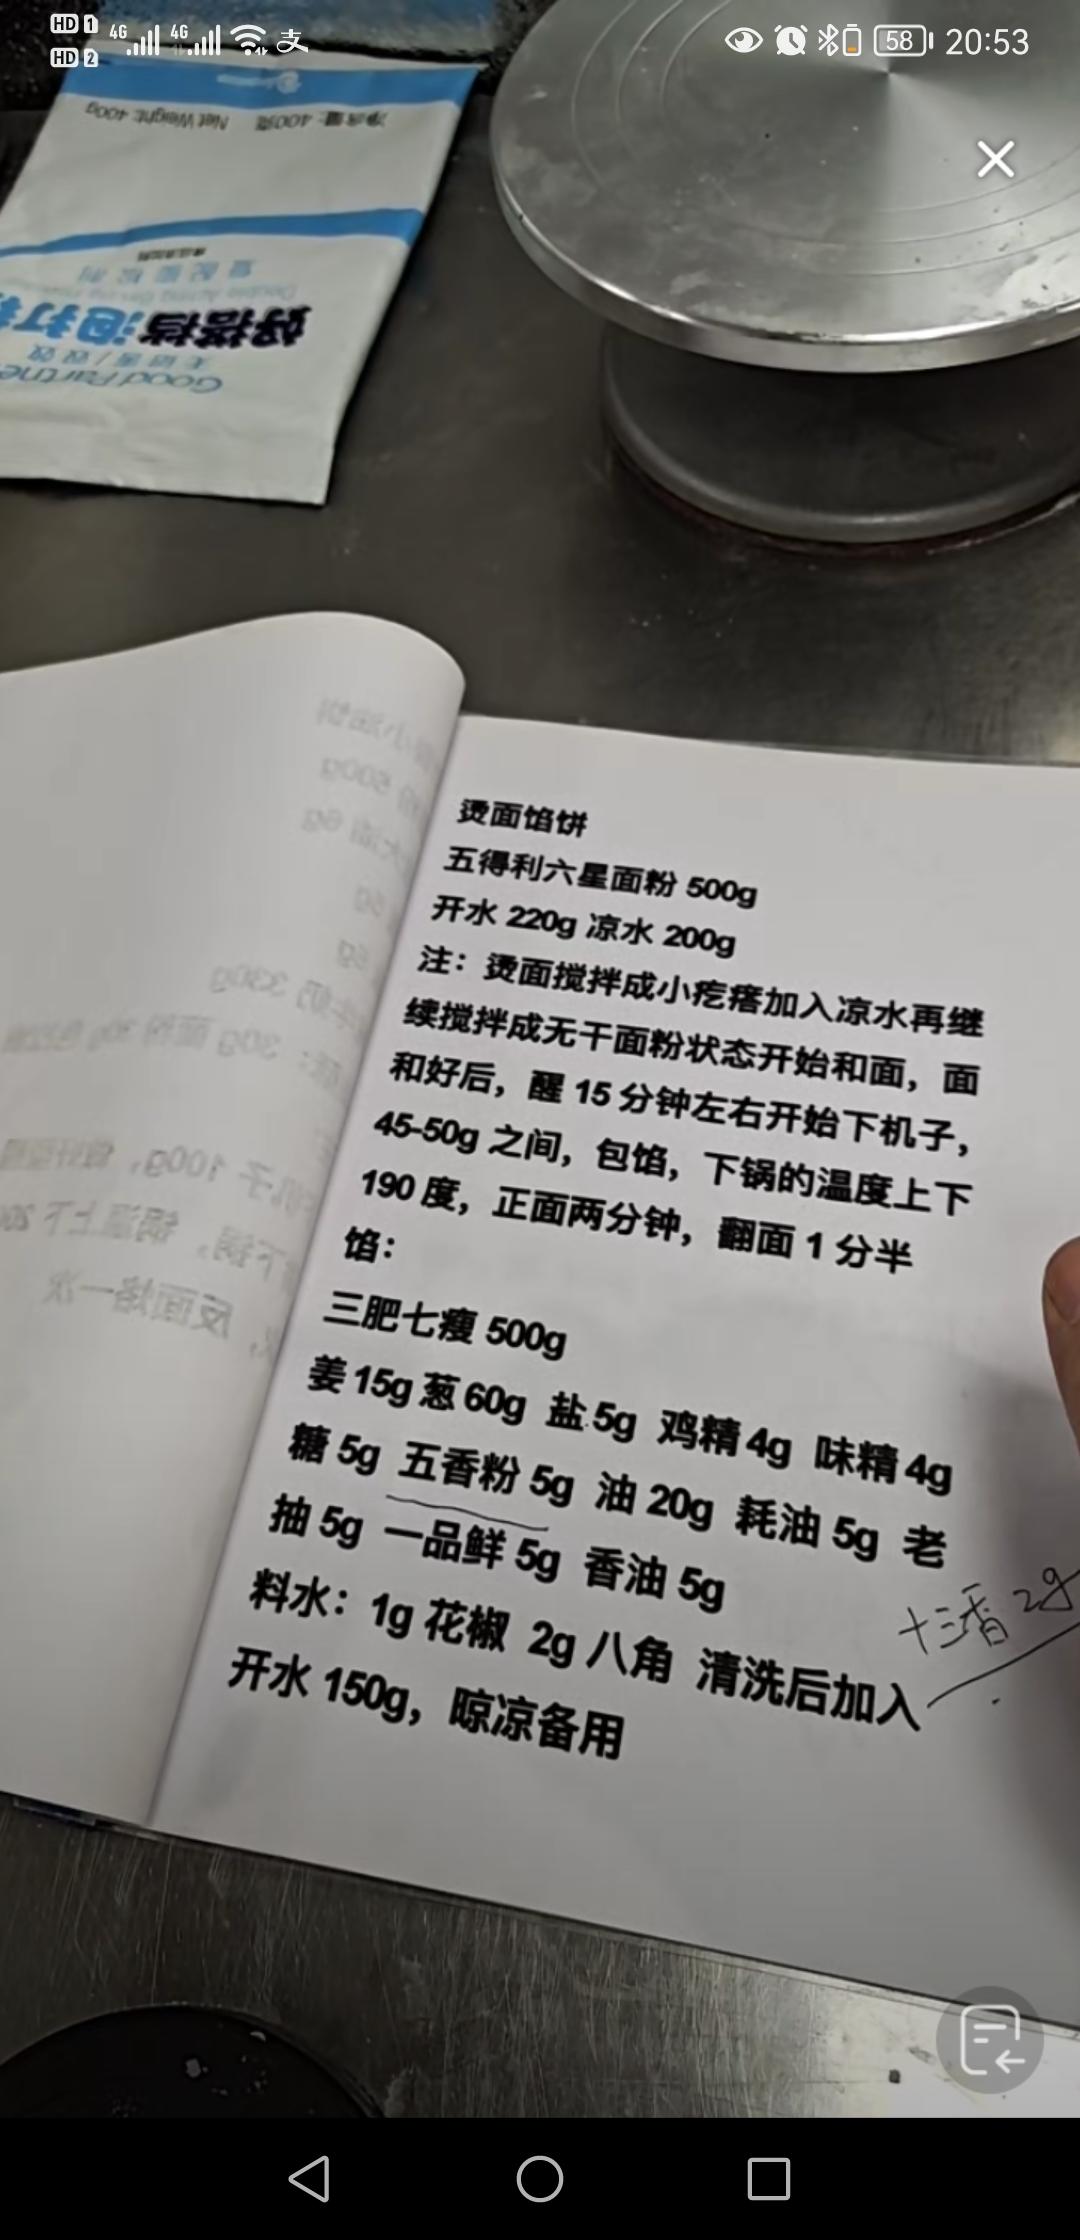 HD 1 4G 4G 支
HD 2
58 20:53
净含量: 400克 Net Weight: 400g
复配膨松剂
好搭档泡打
无铝害/双效
Good Partne
烫面馅饼
五得利六星面粉 500g
开水 220g 凉水 200g
注：烫面搅拌成小疙瘩加入凉水再继
续搅拌成无干面粉状态开始和面，面
和好后，醒 15 分钟左右开始下机子，
45-50g 之间，包馅，下锅的温度上下
190 度，正面两分钟，翻面 1 分半
馅：
三肥七瘦 500g
姜 15g 葱 60g 盐 5g 鸡精 4g 味精 4g
糖 5g 五香粉 5g 油 20g 耗油 5g 老
抽 5g 一品鲜 5g 香油 5g
十三香 2g
料水：1g 花椒 2g 八角 清洗后加入
开水 150g，晾凉备用